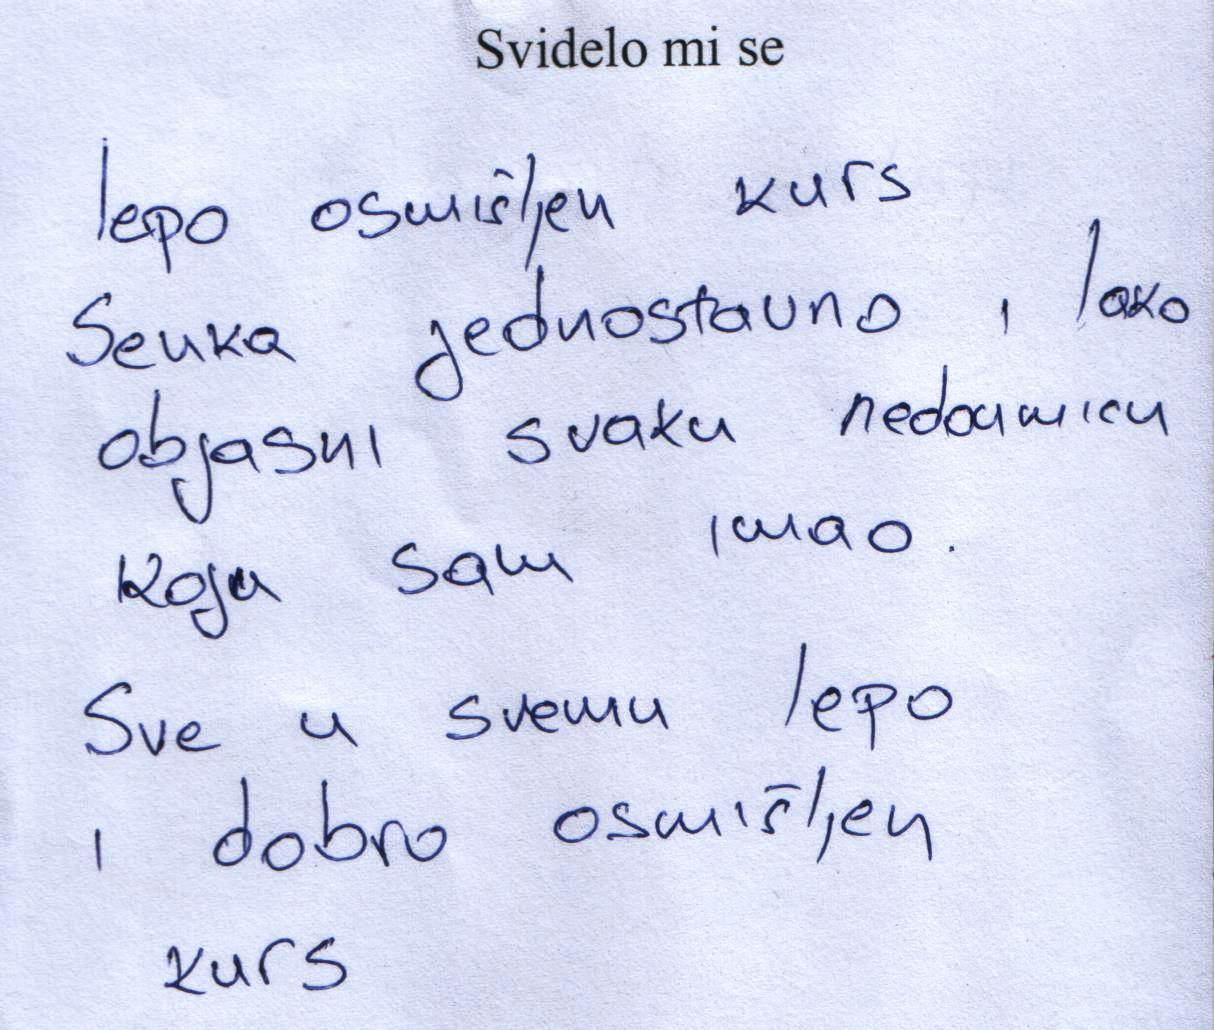 Svidelo mi se
lepo osmišljen kurs
Senka jednostavno i lako
objasni svaku nedoumicu
koju sam imao.
Sve u svemu lepo
i dobro osmišljen
kurs